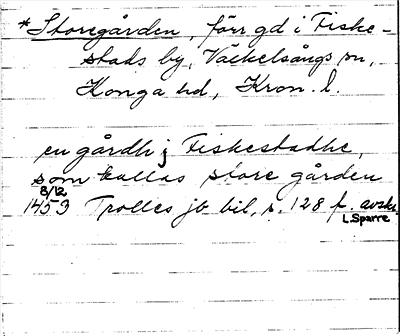 *Storegården, förr gd i Fiske-
stads by, Väckelsångs sn,
Konga hd, Kron. l.
en gårdh j Fiskestadhe,
som kallas store gården
8/12
1459 Trolles jb bil, s. 128 f. avskr.
L. Sparre